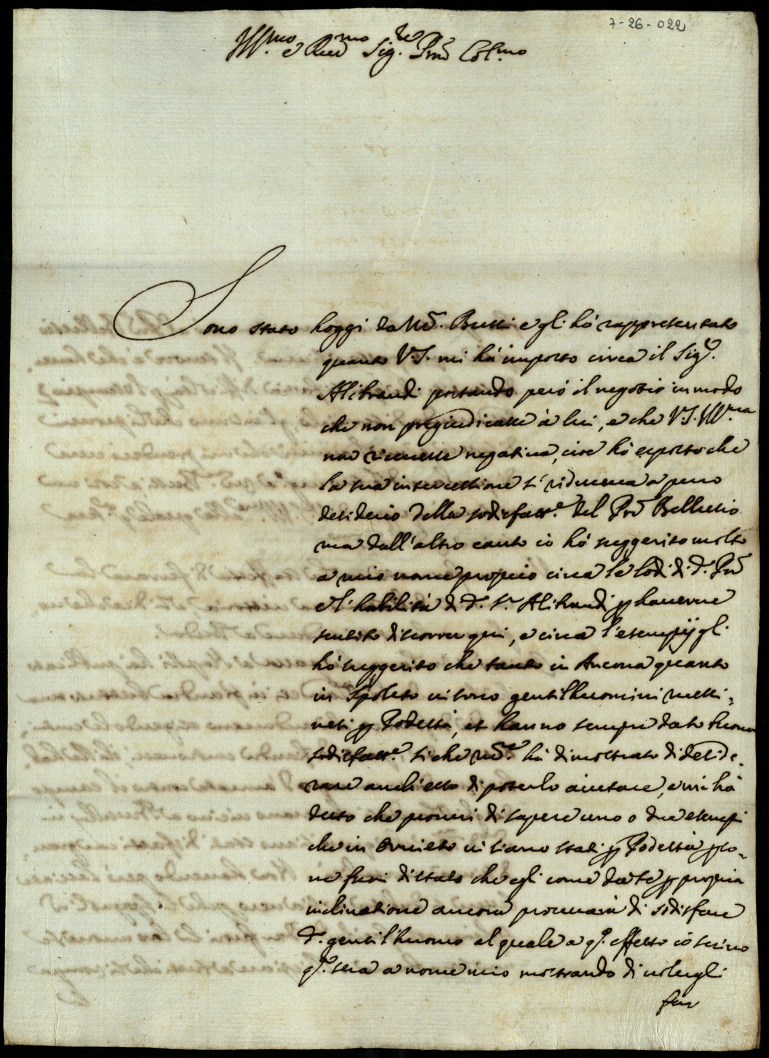 7-26-022
Ill.mo e Rev.mo Sig.re Pron Col.mo
Sono stato hoggi da Md. Bussi e gli hò rappresentato
quanto V.S. mi hà imposto circa il Sig.r
Alibrandi portando però il negotio in modo
che non pregiudicasse à lei, e che V.S. Ill.ma
non ricevesse negativa, cioè hò esposto che
la sua intercessione si riduceva a puro
desiderio della sodisfatt.e del Pre Bellutio
ma dall'altro canto io hò suggerito molto
a mio nome proprio circa le lodi di d.o Pre
e l'habilità di d.o S.r Alibrandi p haverne
sentito discorrer qui, e circa l'esempij gli
hò suggerito che tanto in Ancona quanto
in Spoleto vi sono gentilhuomini
p Podestà, et hanno sempre dato buona
sodisfatt.e si che hà dimostrato di deside-
rare anch'esso di poterlo aiutare, e mi hà
detto che procuri di sapere uno o due esempi
che in Orvieto vi siano stati p Podestà
fuori di stato che egli come da se p propria
inclinatione ancora procurarà di sodisfare
d.o gentil'huomo al quale a q.o effetto io scrivo
q.a sera a nome mio mostrando di volergli
far